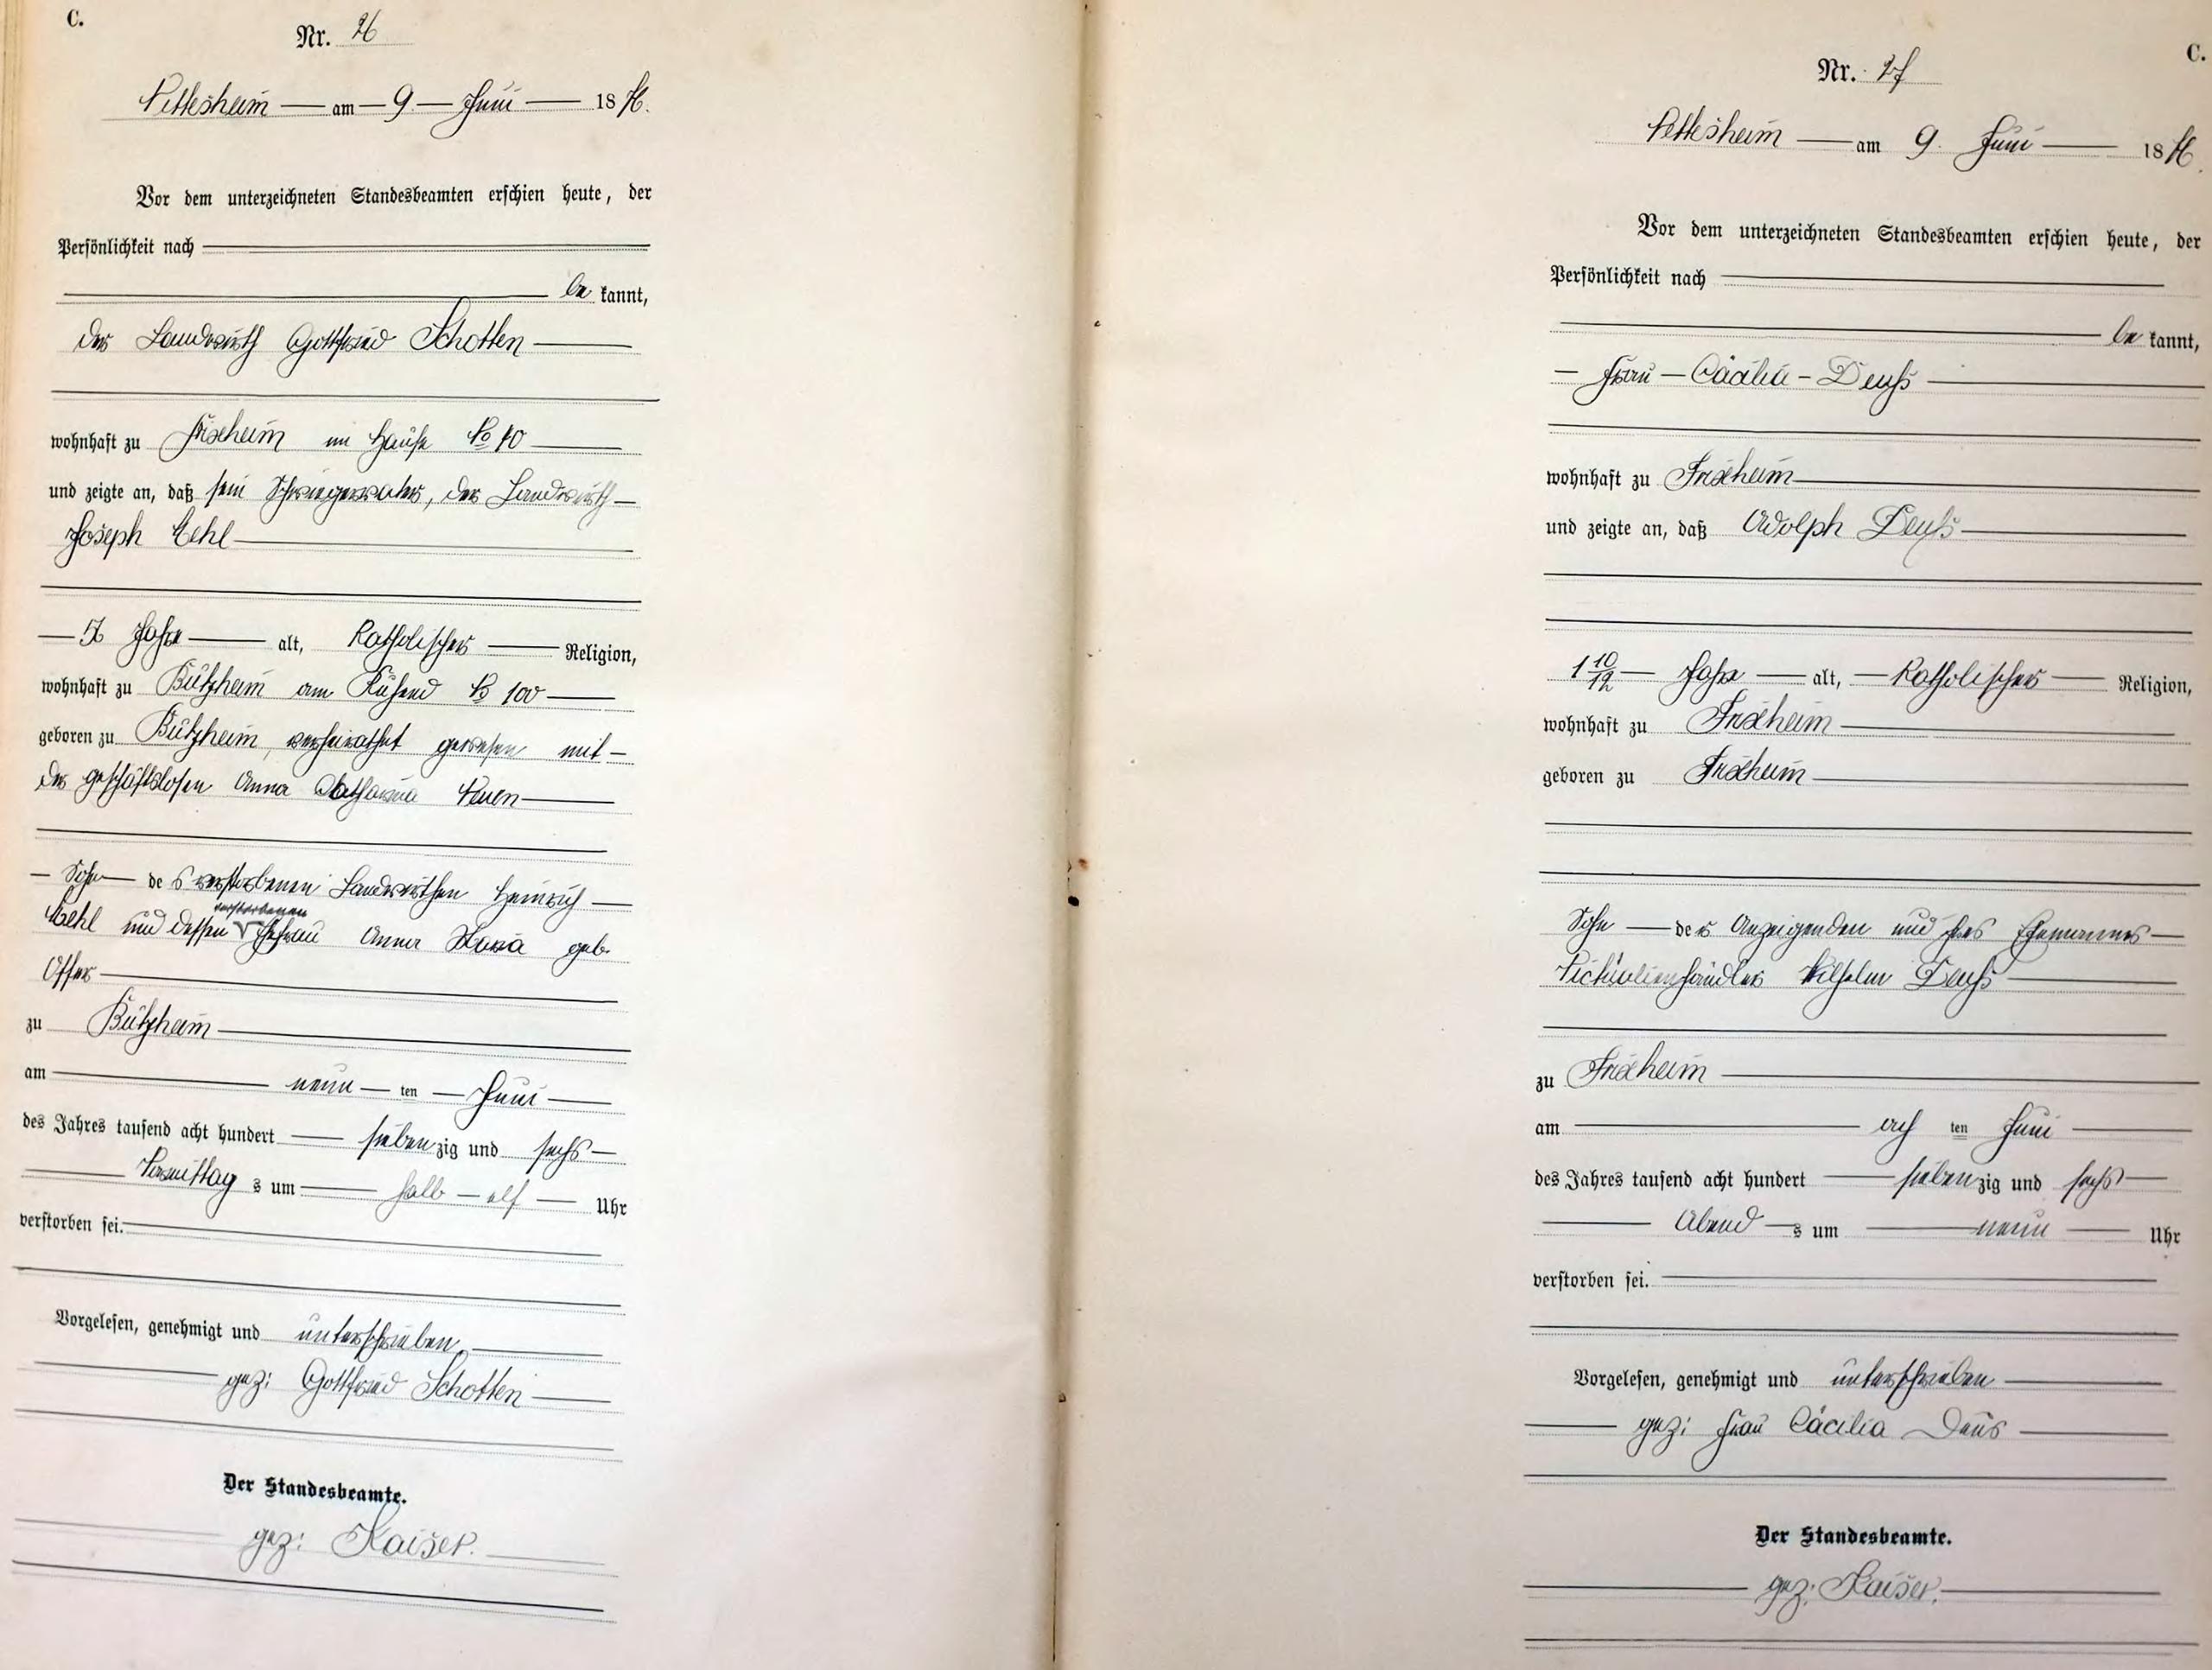 C.
Nr. 26
Nettesheim am 9 Juni 1876.
Vor dem unterzeichneten Standesbeamten erschien heute, der
Persönlichkeit nach
be kannt,
der Landwirth Gottfried Schotten
wohnhaft zu Frixheim im Hause No 10
und zeigte an, daß sein Schwiegervater, der Landwirth
Joseph
56 Jahre alt, Katholischer Religion,
wohnhaft zu Bützheim am No 100
geboren zu Bützheim, verheirathet gewesen mit
der geschäftslosen Anna Catharina
Sohn des verstorbenen Landwirthen Heinrich
verstorbenen
und dessen Ehefrau Anna Maria geb.
Offer
zu Bützheim
am neun ten Juni
des Jahres tausend acht hundert sieben zig und sechs
Vormittag s um halb elf Uhr
verstorben sei.
Vorgelesen, genehmigt und unterschrieben
gez: Gottfried Schotten
Der Standesbeamte.
gez: Kaiser.
C.
Nr. 27
Nettesheim am 9. Juni 1876.
Vor dem unterzeichneten Standesbeamten erschien heute, der
Persönlichkeit nach
be kannt,
Frau Cäcilia Deuß
wohnhaft zu Frixheim
und zeigte an, daß Adolph Deuß
1 10/12 Jahre alt, Katholischer Religion,
wohnhaft zu Frixheim
geboren zu Frixheim
Sohn der Anzeigenden und ihres Ehemannes
Victualienhändler Wilhelm Deuß
zu Frixheim
am ach ten Juni
des Jahres tausend acht hundert sieben zig und sechs
Abend s um neun Uhr
verstorben sei.
Vorgelesen, genehmigt und unterschrieben
gez: Frau Cäcilia Deus
Der Standesbeamte.
gez: Kaiser.